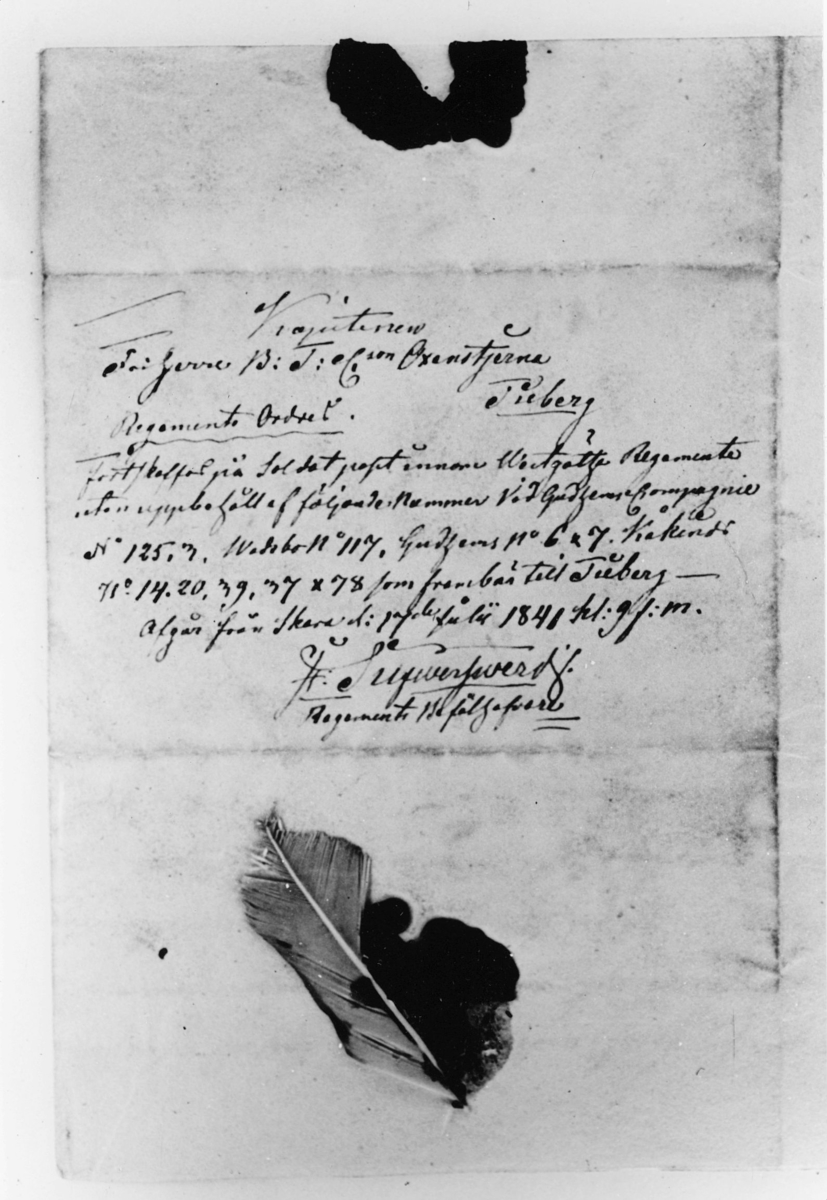 Kapitenen
Fri Herre B: T: C:son Oxenstjerna
Tüberg
Regements Ordres.
fortskaffas på Soldat post innom Westgötha Regemente
utan uppehåll af följande Nummer vid Gudhems Compagnie
No 125, 3, Wadsbo No 117, Gudhems No 6 & 7. Kåkinds
No. 14. 20, 39, 37 & 78 som frambär till Tüberg —
Afgår från Skara d: Julii 1841 kl: 9 f: m.
Regements Befälhafvare